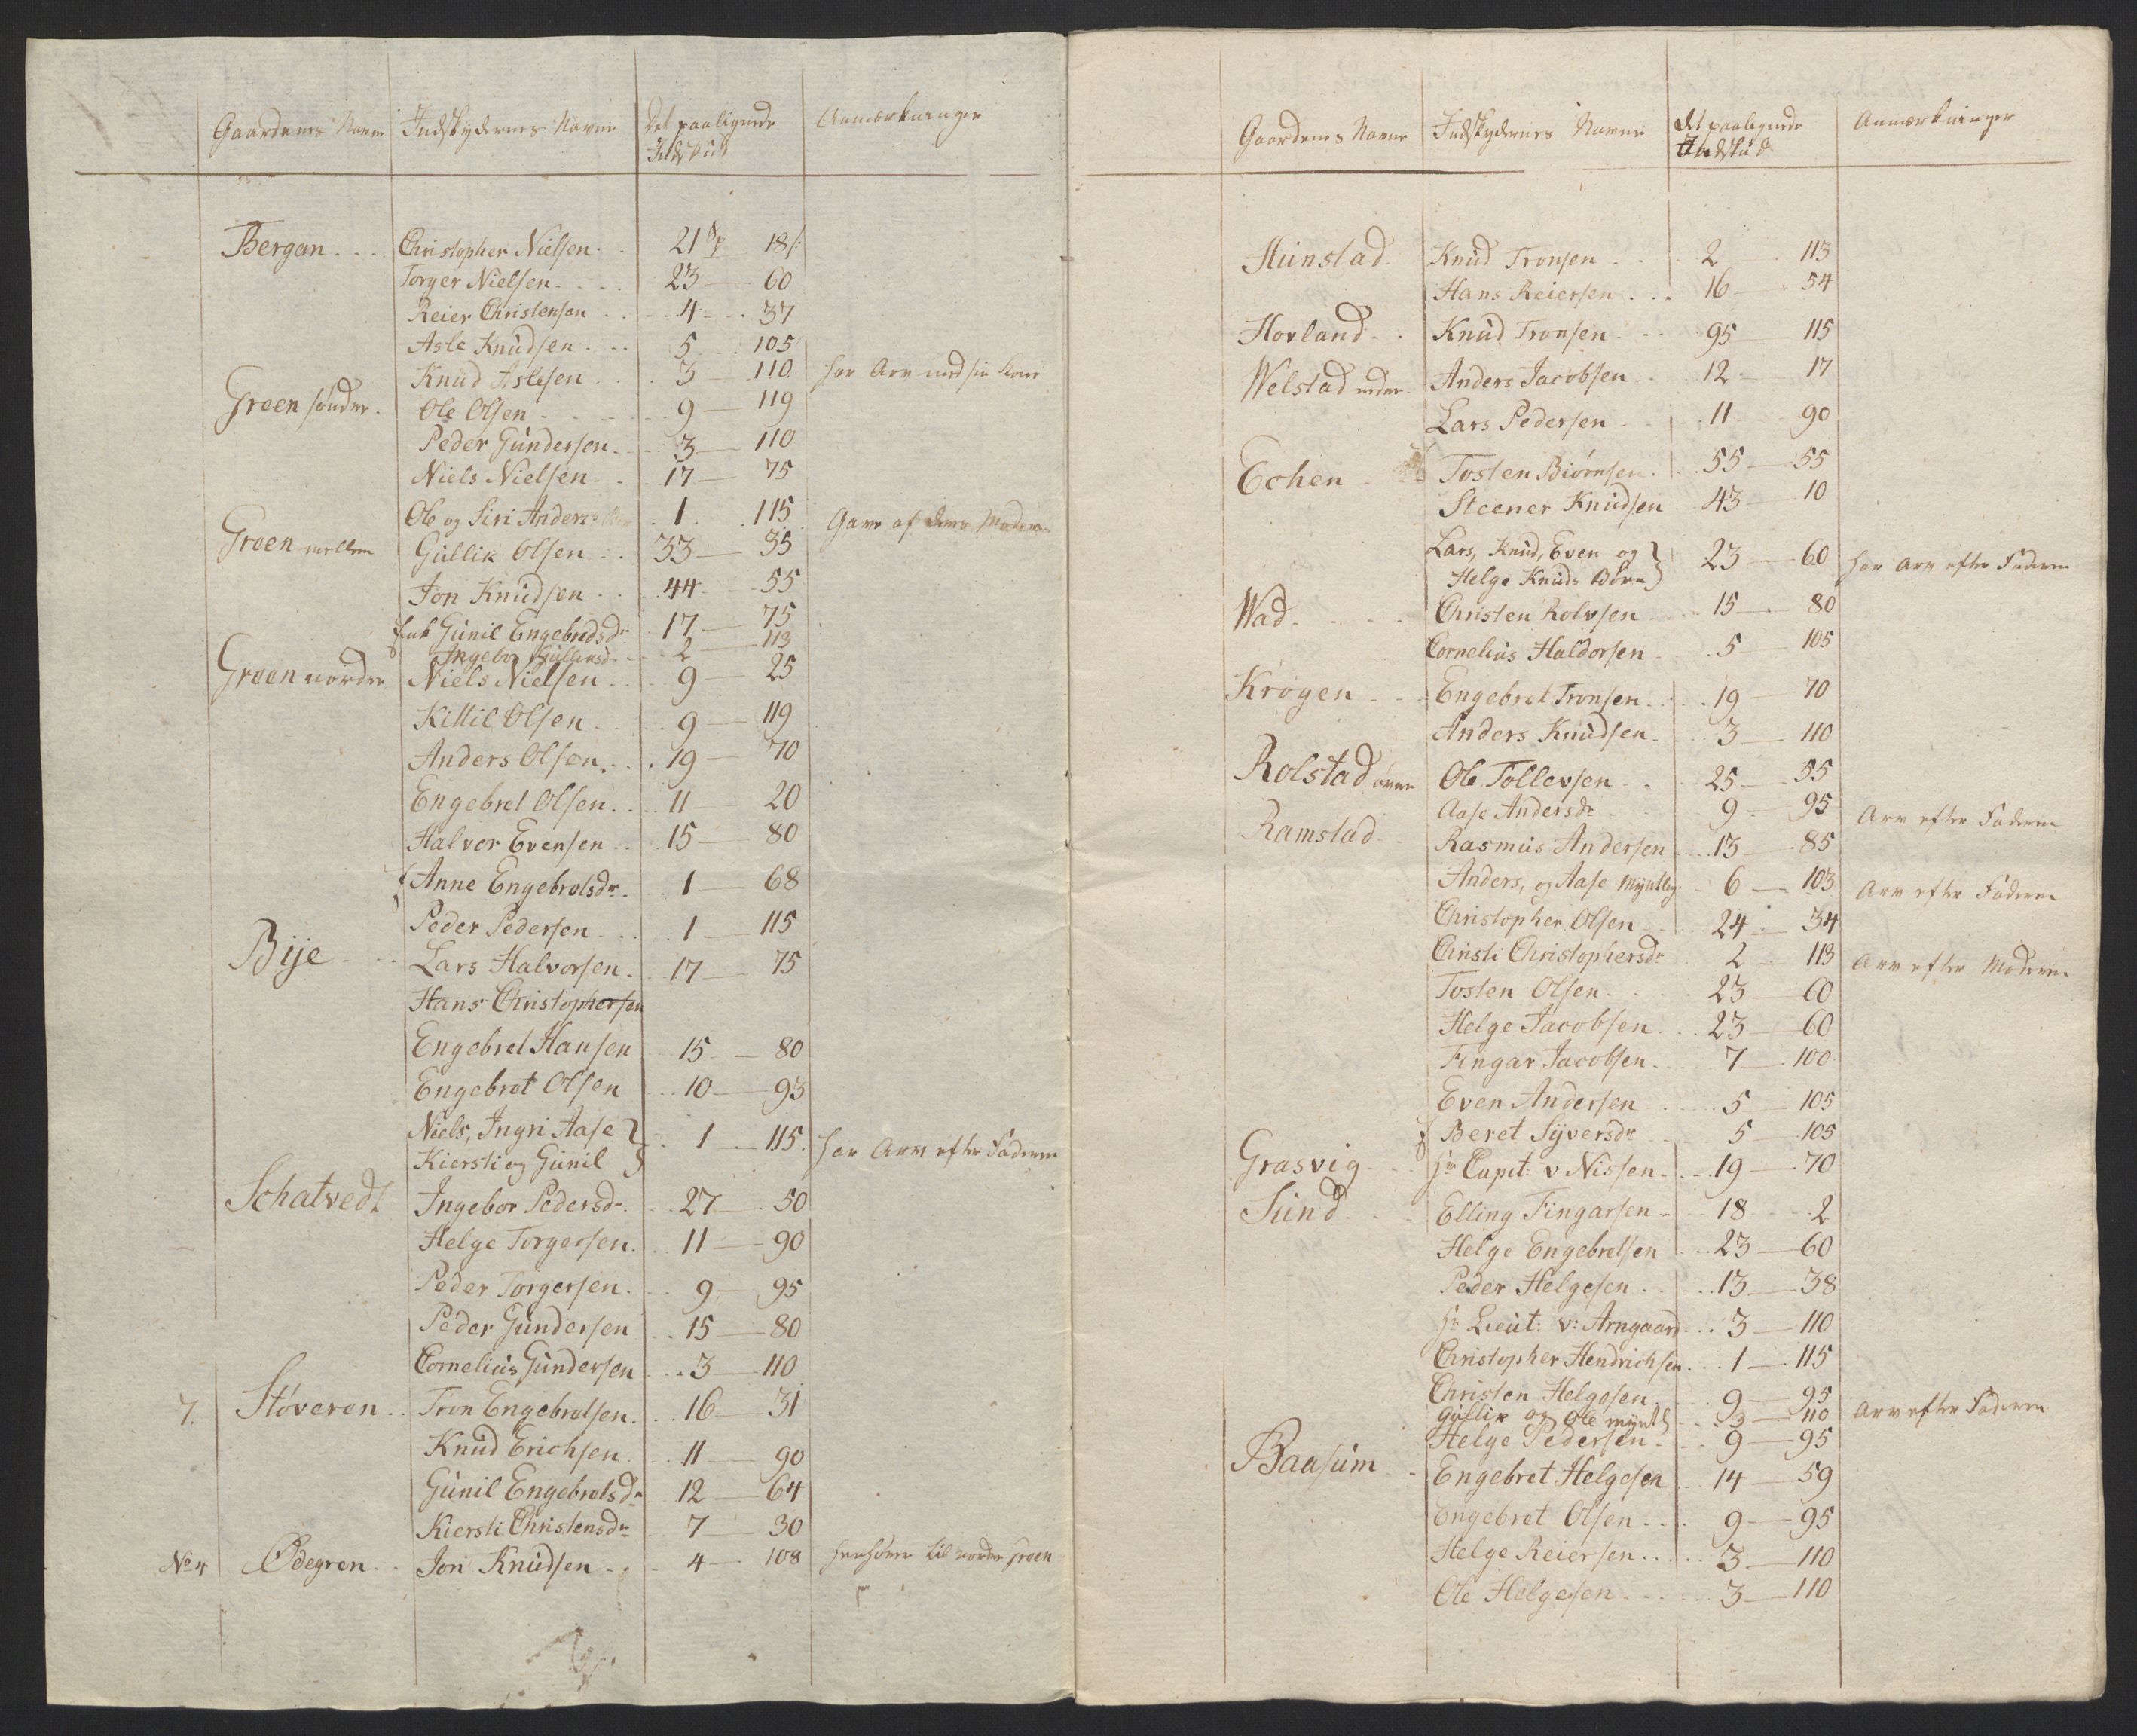 Gaardenes Navne Indskydernes Navne Det paalignede Anmærkninger
Indskud
Bergan Christopher Nielsen 21 Sp 18 s:
Torger Nielsen 23 60
Reier Christensen 4 37
Asle Knudsen 5 105
Knud Aslesen 3 110 har Arv med sin Kone
Groen sønder Ole Olsen 9 119
Peder Gundersen 3 110
Niels Nielsen 17 75
Ole og Siri Anders 1 115 Gave af deres Moder
Groen mellem Gullik Olsen 33 35
Jon Knudsen 44 55
Enk Gunil Engebredsdr 17 75
Ingebor Gulliksd 2 113
Groen nordre Niels Nielsen 9 25
Killil Olsen 9 119
Anders Olsen 19 70
Engebret Olsen 11 20
Halvor Evensen 15 80
Anne Engebrets dr 1 68
Peder Pedersen 1 115
Bije Lars Halvorsen 17 75
Hans Christophersen
Engebret Hansen 15 80
Engebret Olsen 10 93
Niels, Ingri Aase
Kiersti og Gunil 1 115 har Arv efter Faderen
Schatvedt Ingebor Pedersdr 27 50
Helge Torgersen 11 90
Peder Torgersen 9 95
Peder Gundersen 15 80
Cornelius Gundersen 3 110
7. Støveren Tron Engebretsen 16 31
Knud Erichsen 11 90
Gunil Engebretsdr 12 64
Kiersti Christensdr 7 30
No 4 Ødegren Jon Knudsen 4 108 henhører til nordre Groen
Gaardenes Navne Indskydernes Navne det paalignede Anmærkninger
Indskud
Hunstad Knud Tronsen 2 113
Hans Reiersen 16 54
Hovland Knud Tronsen 95 115
Welstad neder Anders Jacobsen 12 17
Lars Pedersen 11 90
Echen Tosten Biørnsen 55 55
Steener Knudsen 43 10
Lars, Knud, Even og
Helge Knuds Børn 23 60 har Arv efter Faderen
Wad Christen Rolvsen 15 80
Cornelius Haldorsen 5 105
Krøgen Engebret Tronsen 19 70
Anders Knudsen 3 110
Rolstad øvre Ole Tollevsen 25 55
Aase Andersdr 9 95 Arv efter Faderen
Ramstad Rasmus Andersen 13 85
Anders, og Aase Myntlig 6 103 Arv efter Faderen
Christopher Olsen 24 34
Christi Christophersdr 2 113 Arv efter Moderen
Tosten Olsen 23 60
Helge Jacobsen 23 60
Fingar Jacobsen 7 100
Even Andersen 5 105
Beret Syversdr 5 105
Grasvig Hr Capit: v Nissen 19 70
Sund Elling Fingarsen 18 2
Helge Engebretsen 23 60
Peder Helgesen 13 38
Hr Lieut: v: Arngaard 3 110
Christopher Hendrichsen 1 115
Christen Helgesen 9 95
Gullik og Ole myntl 3 110 Arv efter Faderen
Helge Pedersen 9 95
Baasum Engebret Helgesen 14 59
Engebret Olsen 9 95
Helge Reiersen 3 110
Ole Helgesen 3 110